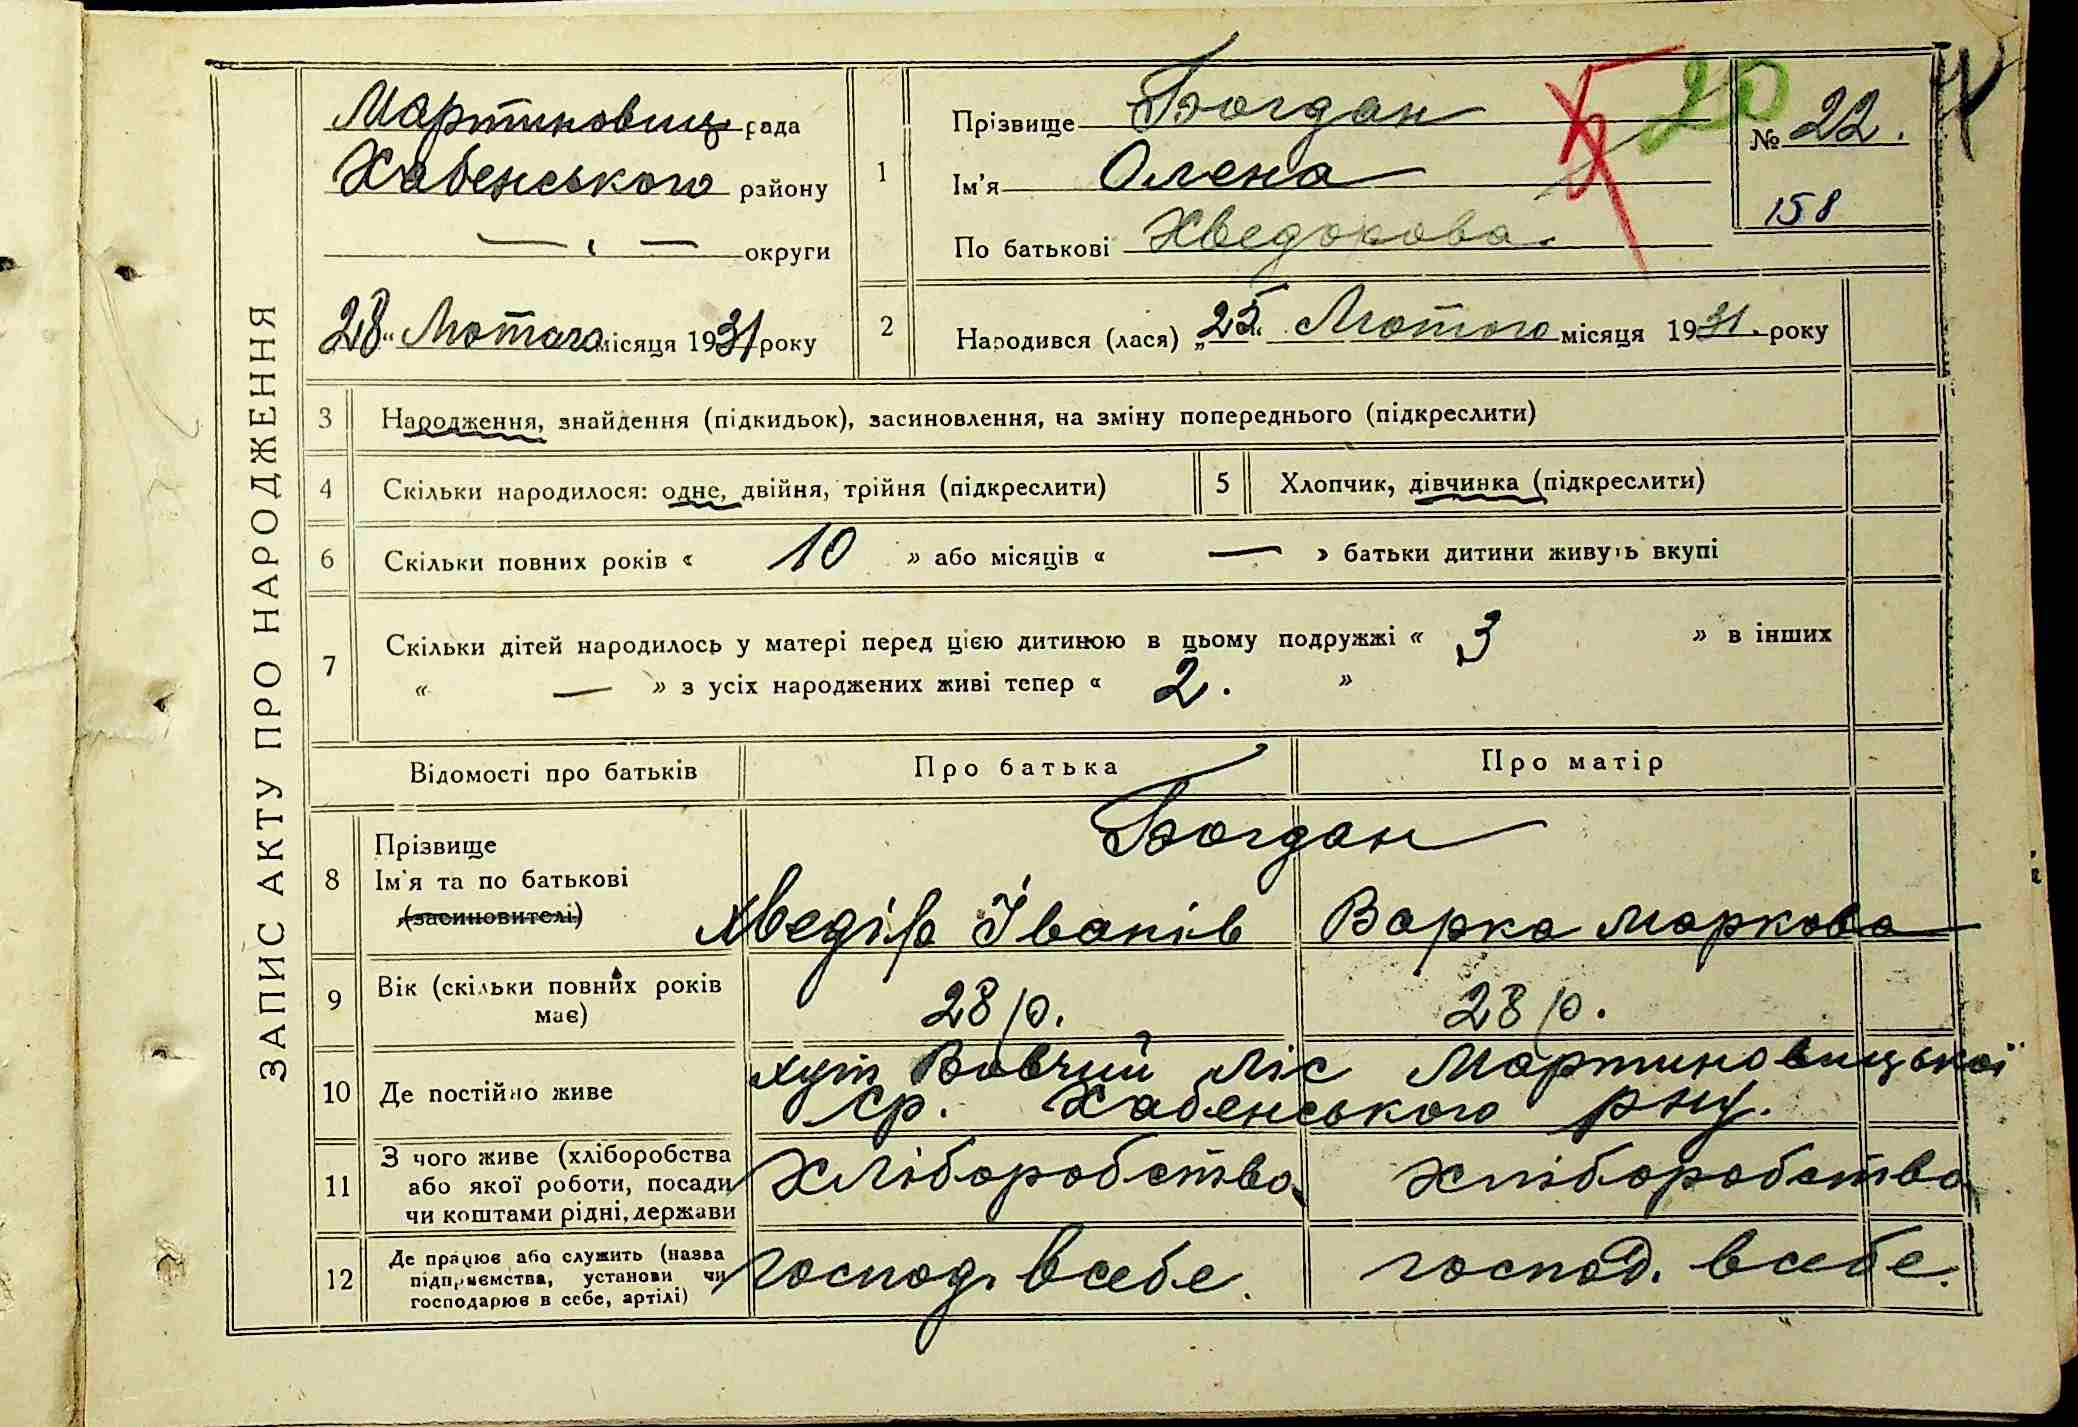 ЗАПИС АКТУ ПРО НАРОДЖЕННЯ
Мартиновиц рада
Хабенського району
— " — округи
28 " Лютого місяця 1931 року
1
Прізвище Богдан
Ім'я Олена
По батькові Хведорова
20
№ 22.
158
2
Народився (лася) „25" Лютого місяця 1931. року
3 Народження, знайдення (підкидьок), засиновлення, на зміну попереднього (підкреслити)
4 Скільки народилося: одне, двійня, трійня (підкреслити)
5 Хлопчик, дівчинка (підкреслити)
6 Скільки повних років « 10 » або місяців « — » батьки дитини живуть вкупі
7 Скільки дітей народилось у матері перед цією дитиною в цьому подружжі « 3 » в інших
« — » з усіх народжених живі тепер « 2. »
Відомості про батьків Про батька Про матір
8 Прізвище
Ім'я та по батькові
(засиновителі)
Богдан
Хведір Іванів Варка Маркова
9 Вік (скільки повних років
має)
28 р. 28 р.
10 Де постійно живе
хут Вовчий Ліс Мартиновицької
ср. Хабенського рну.
11 З чого живе (хліборобства
або якої роботи, посади
чи коштами рідні, держави
Хліборобство Хліборобство
12 Де працює або служить (назва
підприємства, установи чи
господарює в себе, артілі)
господ. в себе. господ. в себе.